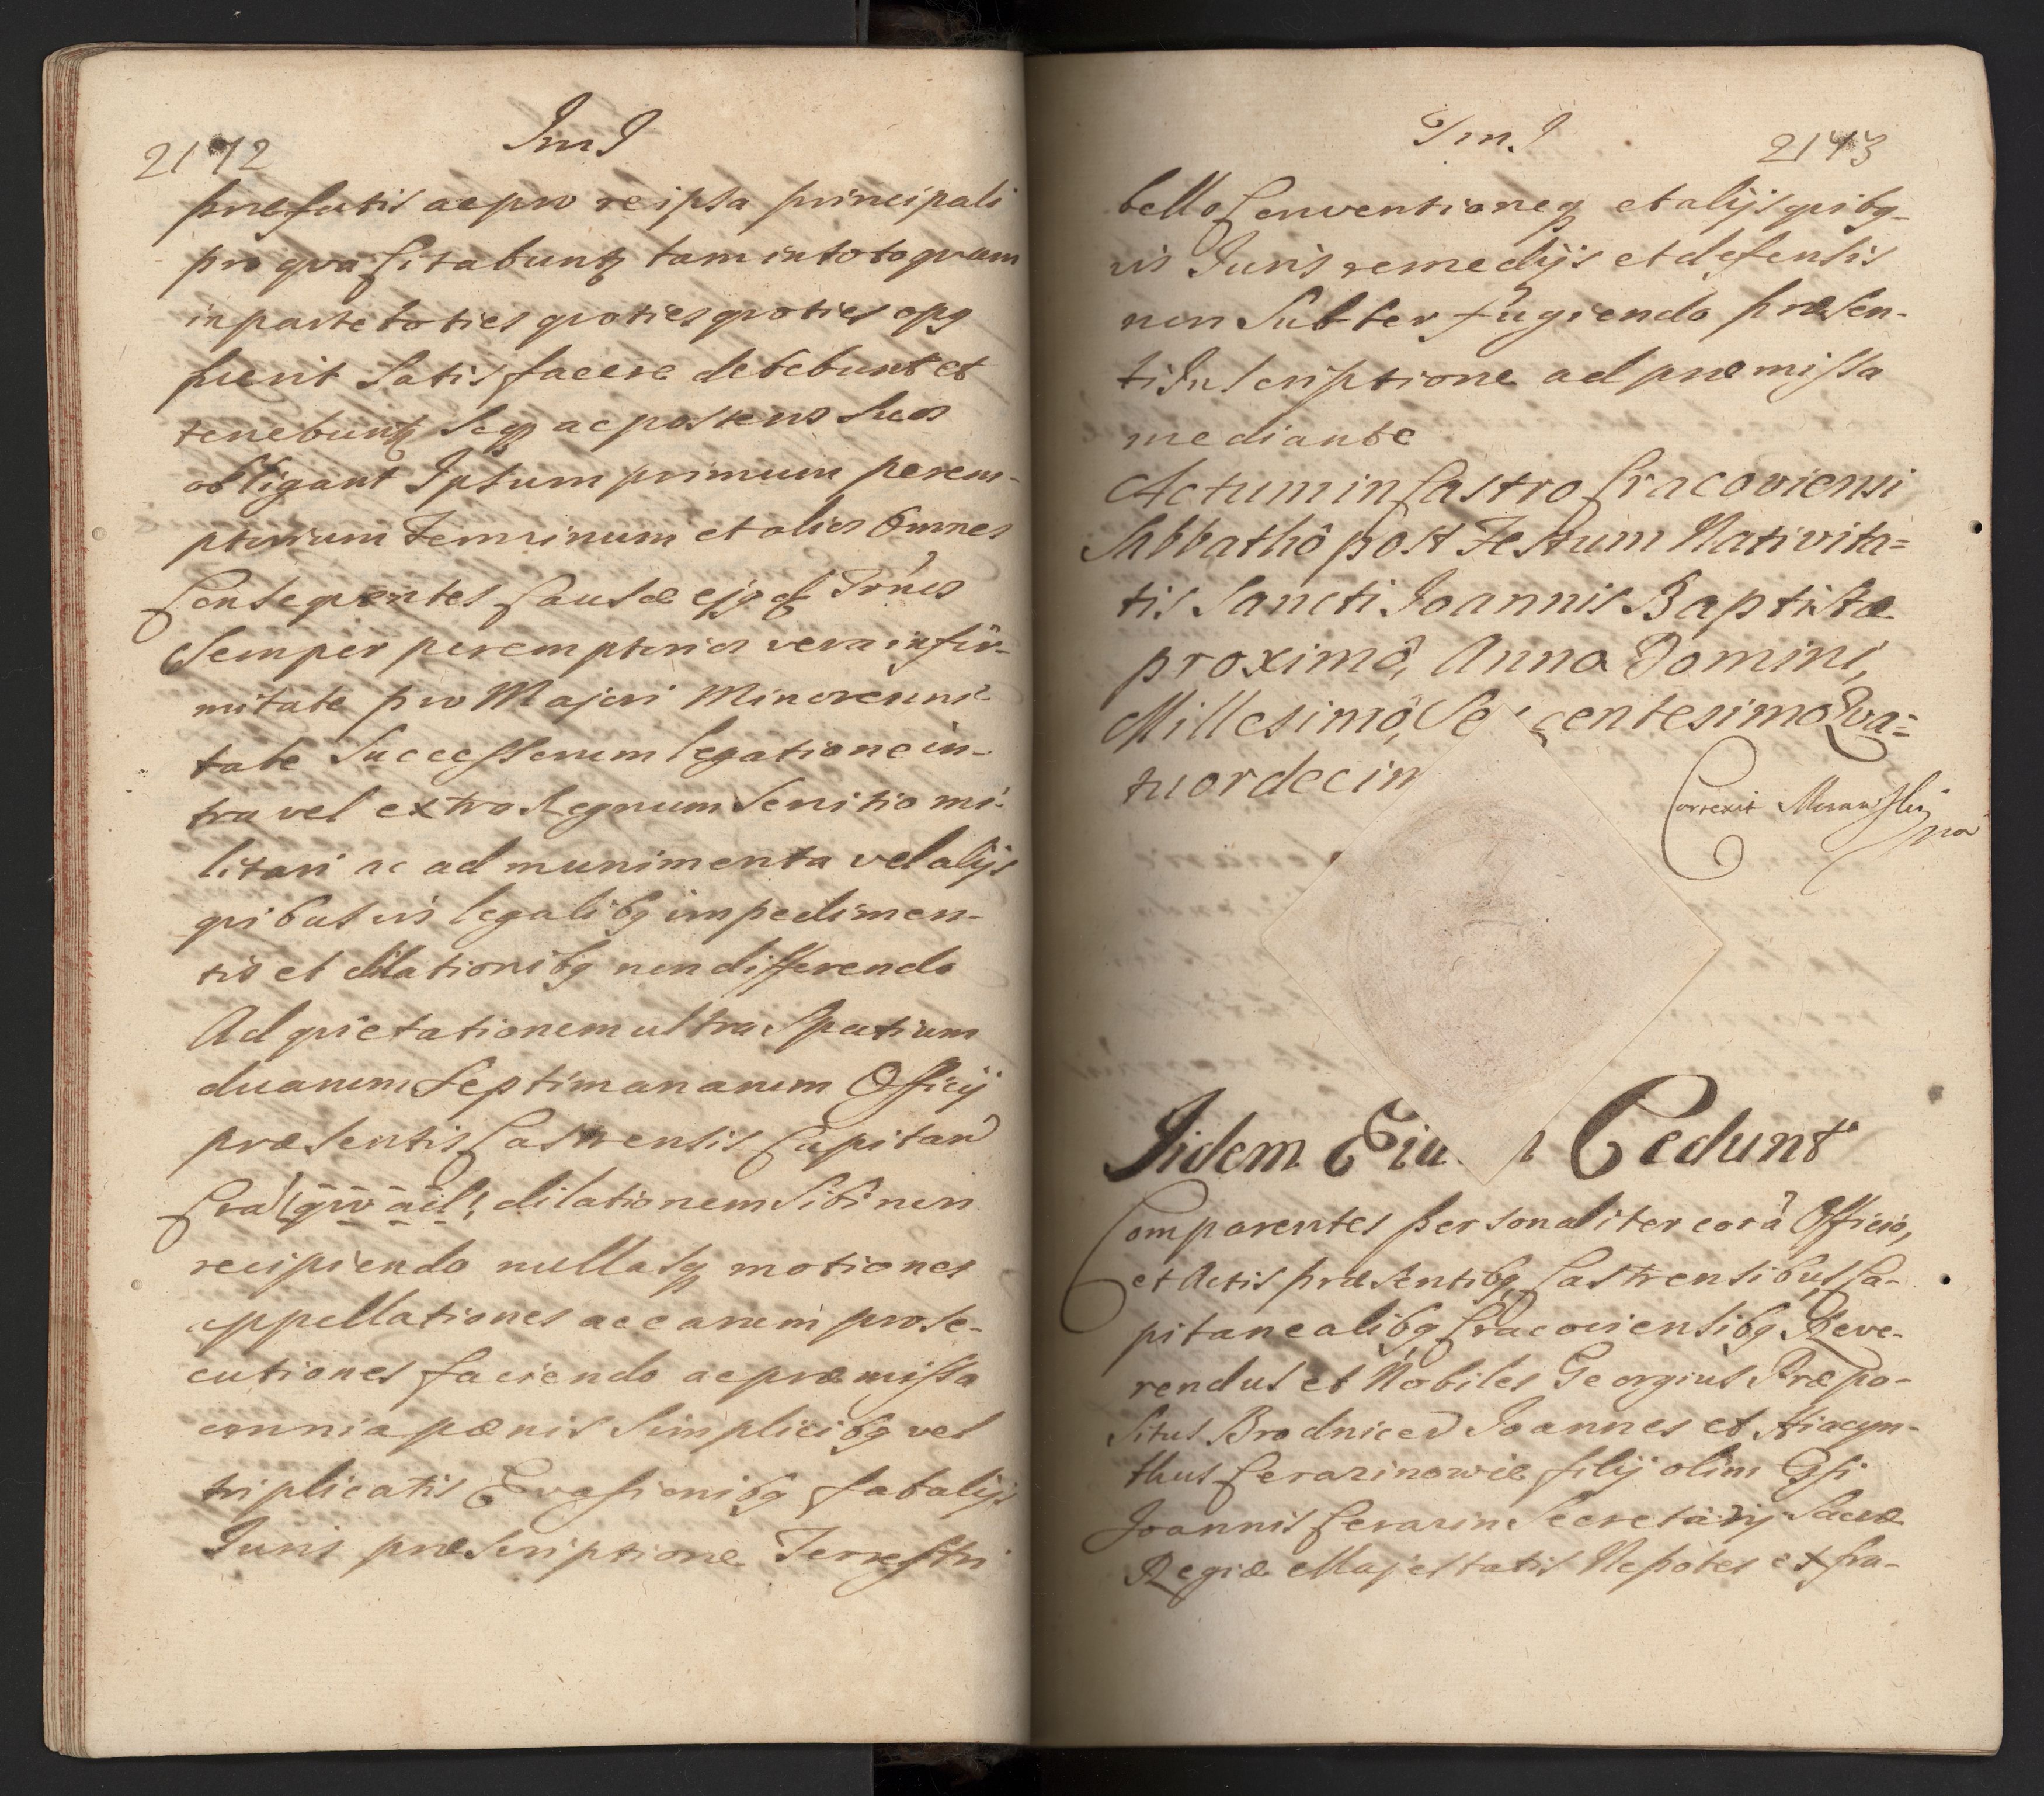 2142
Im I
præfatis ac pro re ipsa principali
pro qva Citabuntʒ tam in toto qvam
in parte toties qvoties qvoties opq
fuerit Satisfacere debebunt et
tenebuntʒ Seqʒ ac posteros Suos
obligant Ipsum primum perem-
ptorium Terminum et alios Omnes
Conseqventes Causæ ejqdʒ Trńos
Semper peremptorios vera infir-
mitate pro Majori Minorenni-
tate Successorum legatione in-
tra vel extra Regnum Servitio mi-
litari ac ad munimenta vel alijs
qvibusvis legalibq impedimen-
tis et dilationibq non differendo
Ad qvietationem ultra Spatium
duarum Septimanarum Officij
præsentis Castrensis Capitan
Cra (qvō ācil) dilationem Sibi non
recipiendo nullasqʒ motiones
appellationes ac earum prose-
cutiones faciendo ac præmissa
omnia pœnis Simplicibq vel
triplicatis Evasionibq fatalijs
Juris præscriptione Terrestri
Im. I
2143
bello Conventioneqʒ et alijs qvibq-
vis Juris remedijs et defensis
non Subterfugiendo præsen-
ti Inscriptione ad præmissa
mediante
Actum in Castro Cracoviensi
Sabbathô post Festum Nativita=
tis Sancti Joannis Baptistæ
proximô, Anno Domini,
Millesimô, Se centesimo Qva=
tuordecim
Correxit
Iidem Eid Cedunt
Comparentes personaliter corā Officio,
et Actis præsentibq Castrensibus Ca-
pitanealibq Cracoviensibq Reve-
rendus et Nobiles Georgius Præpo-
situs Brodnicen Joannes et Hiacyn-
thus Cerazinowie filij olim Gsi
Joannis Cerazin Secretarij Sacræ
Regiæ Majestatis Nepotes ex fra-